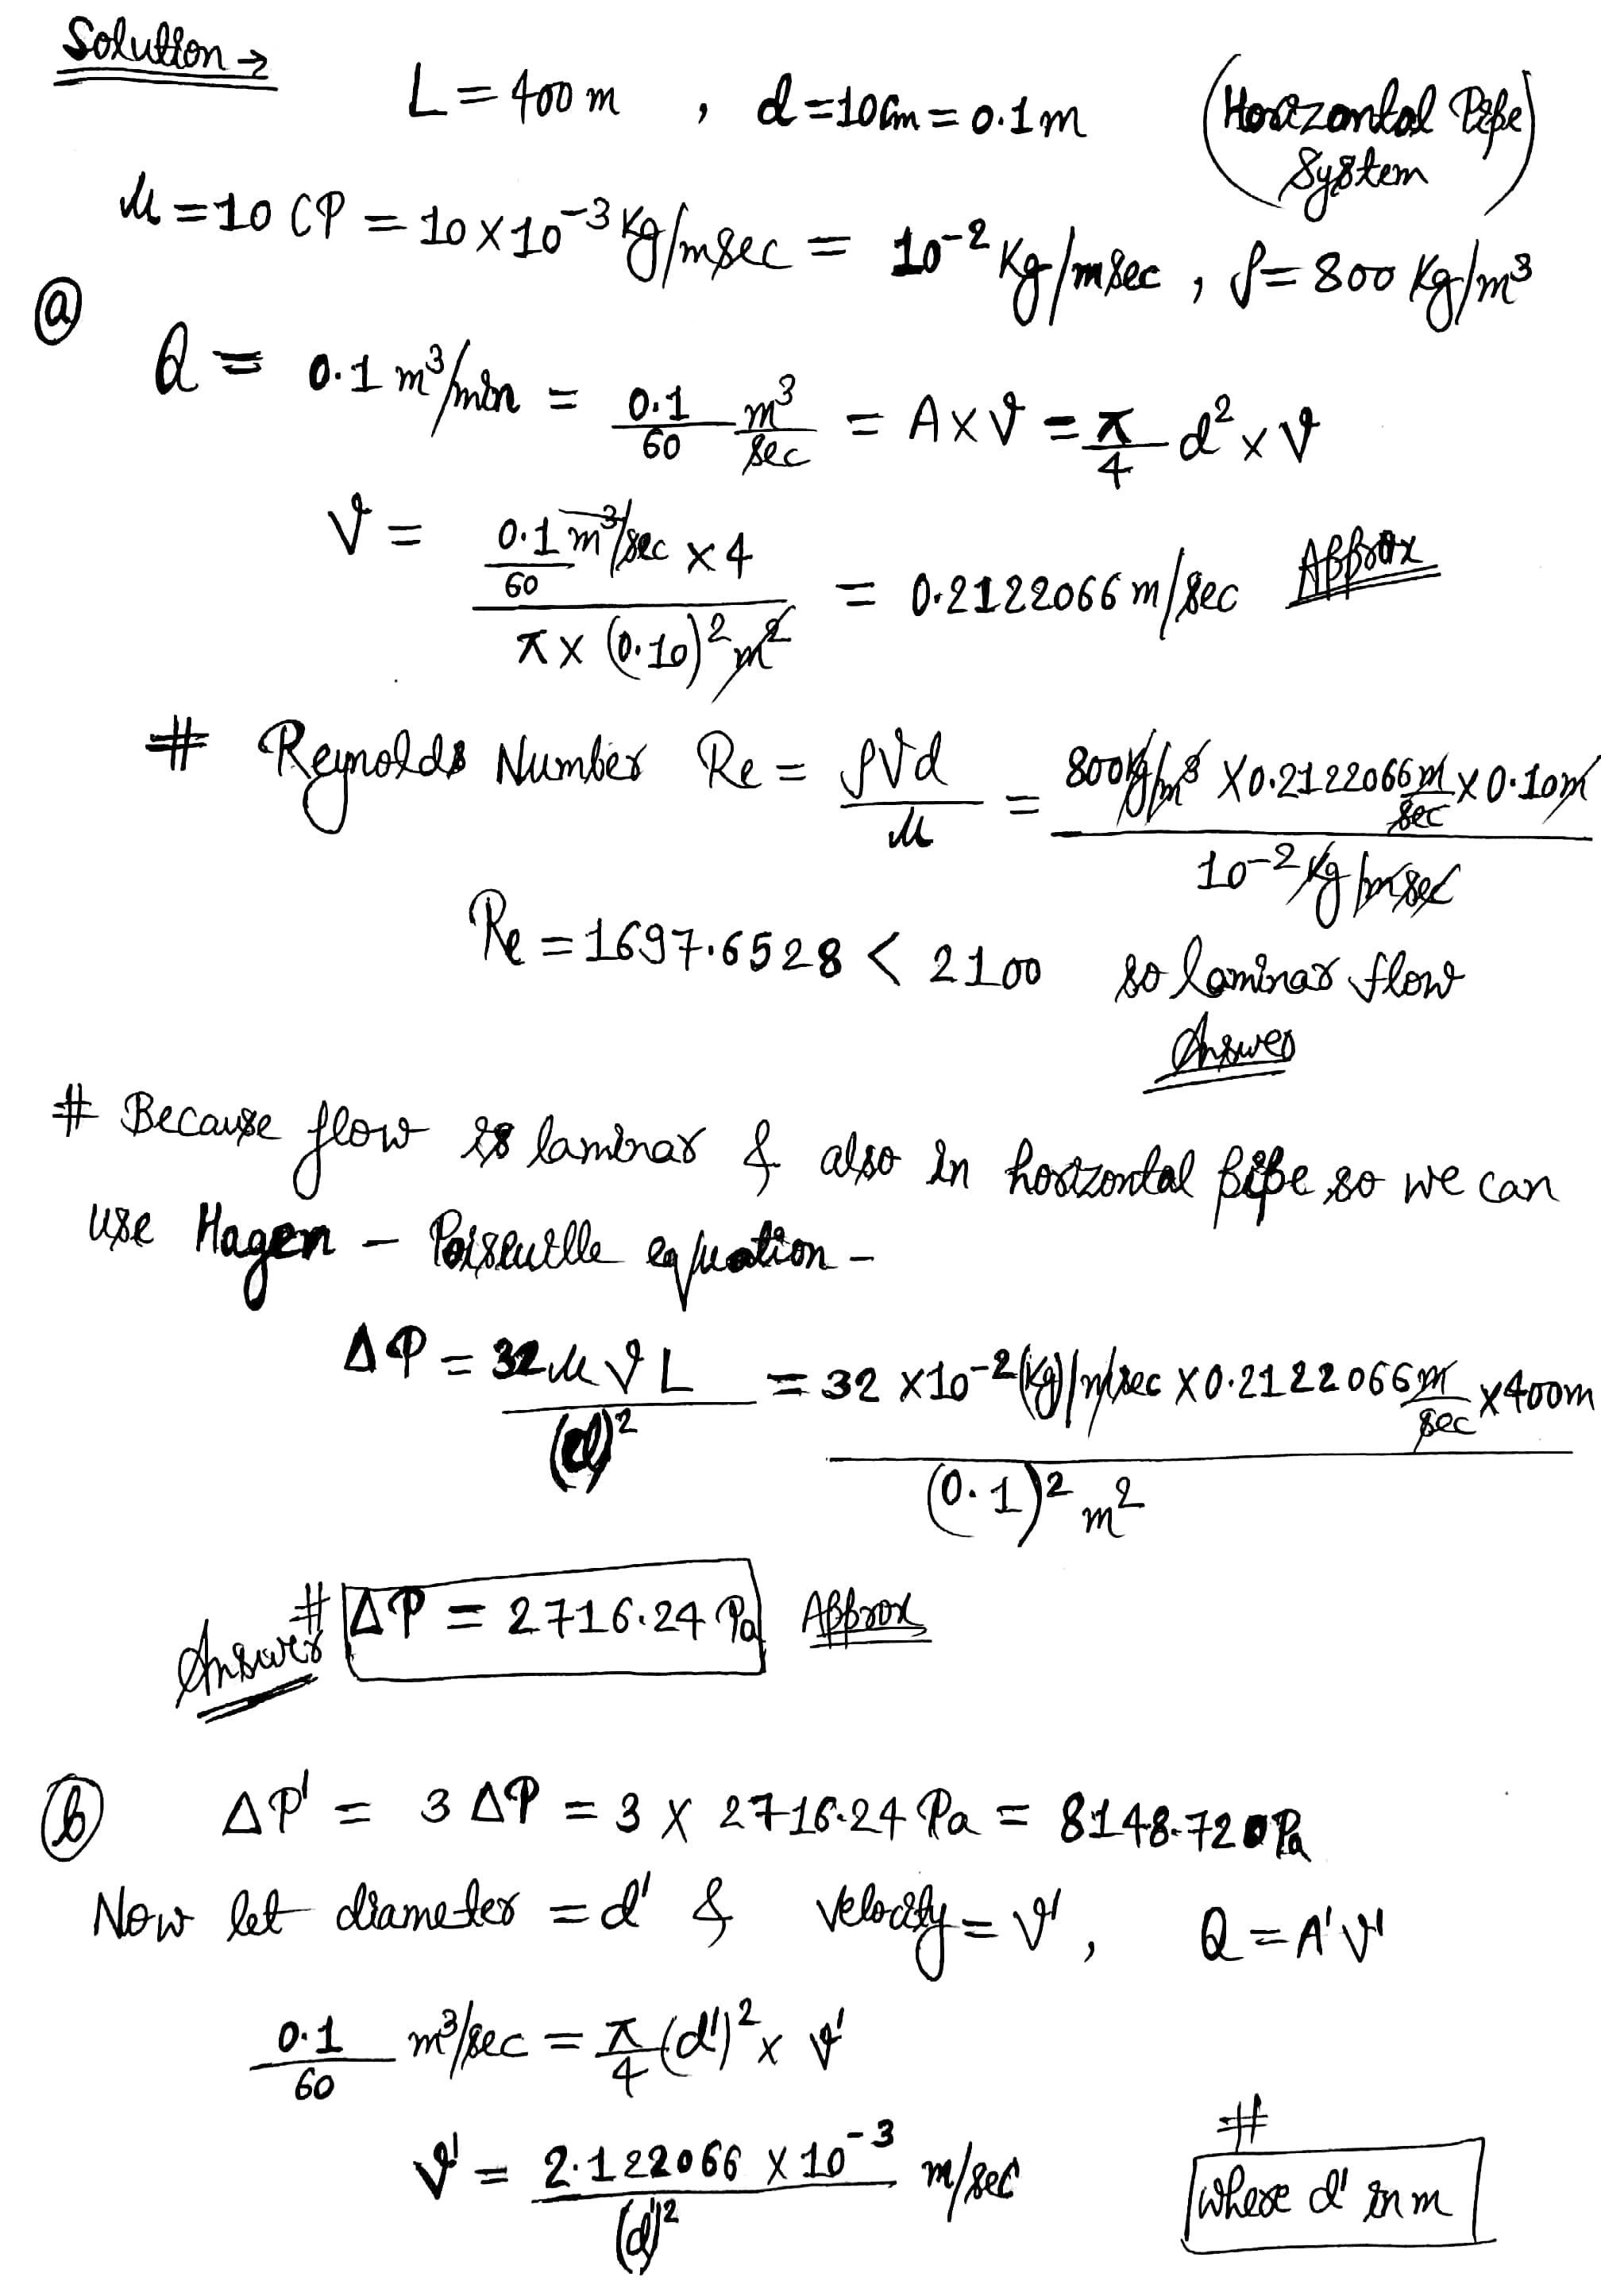 Solution →
L = 400 m , d = 10 cm = 0.1 m (Horizontal Pipe System)
μ = 10 CP = 10 × 10⁻³ Kg/msec = 10⁻² Kg/msec , ρ = 800 Kg/m³
ⓐ
Q = 0.1 m³/min = 0.1/60 m³/sec = A × V = π/4 d² × V
V = (0.1/60 m³/sec × 4) / (π × (0.10)² m²) = 0.2122066 m/sec Approx
# Reynolds Number Re = ρVd/μ = (800 Kg/m³ × 0.2122066 m/sec × 0.10m) / (10⁻² Kg/msec)
Re = 1697.6528 < 2100 so laminar flow
Answer
# Because flow is laminar & also in horizontal pipe so we can
use Hagen – Poiseuille equation –
ΔP = 32μVL/(d)² = (32 × 10⁻² (Kg)/m/sec × 0.2122066 m/sec × 400m) / ((0.1)² m²)
Answer # ΔP = 2716.24 Pa Approx
ⓑ ΔP' = 3 ΔP = 3 × 2716.24 Pa = 8148.720 Pa
Now let diameter = d' & velocity = V' , Q = A'V'
0.1/60 m³/sec = π/4 (d')² × V'
V' = 2.122066 × 10⁻³/(d')² m/sec # where d' in m